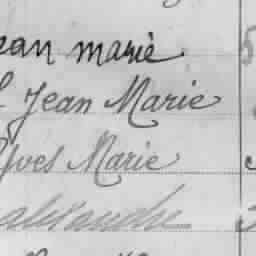 ean marie
Jean Marie
Yves Marie
alexandre